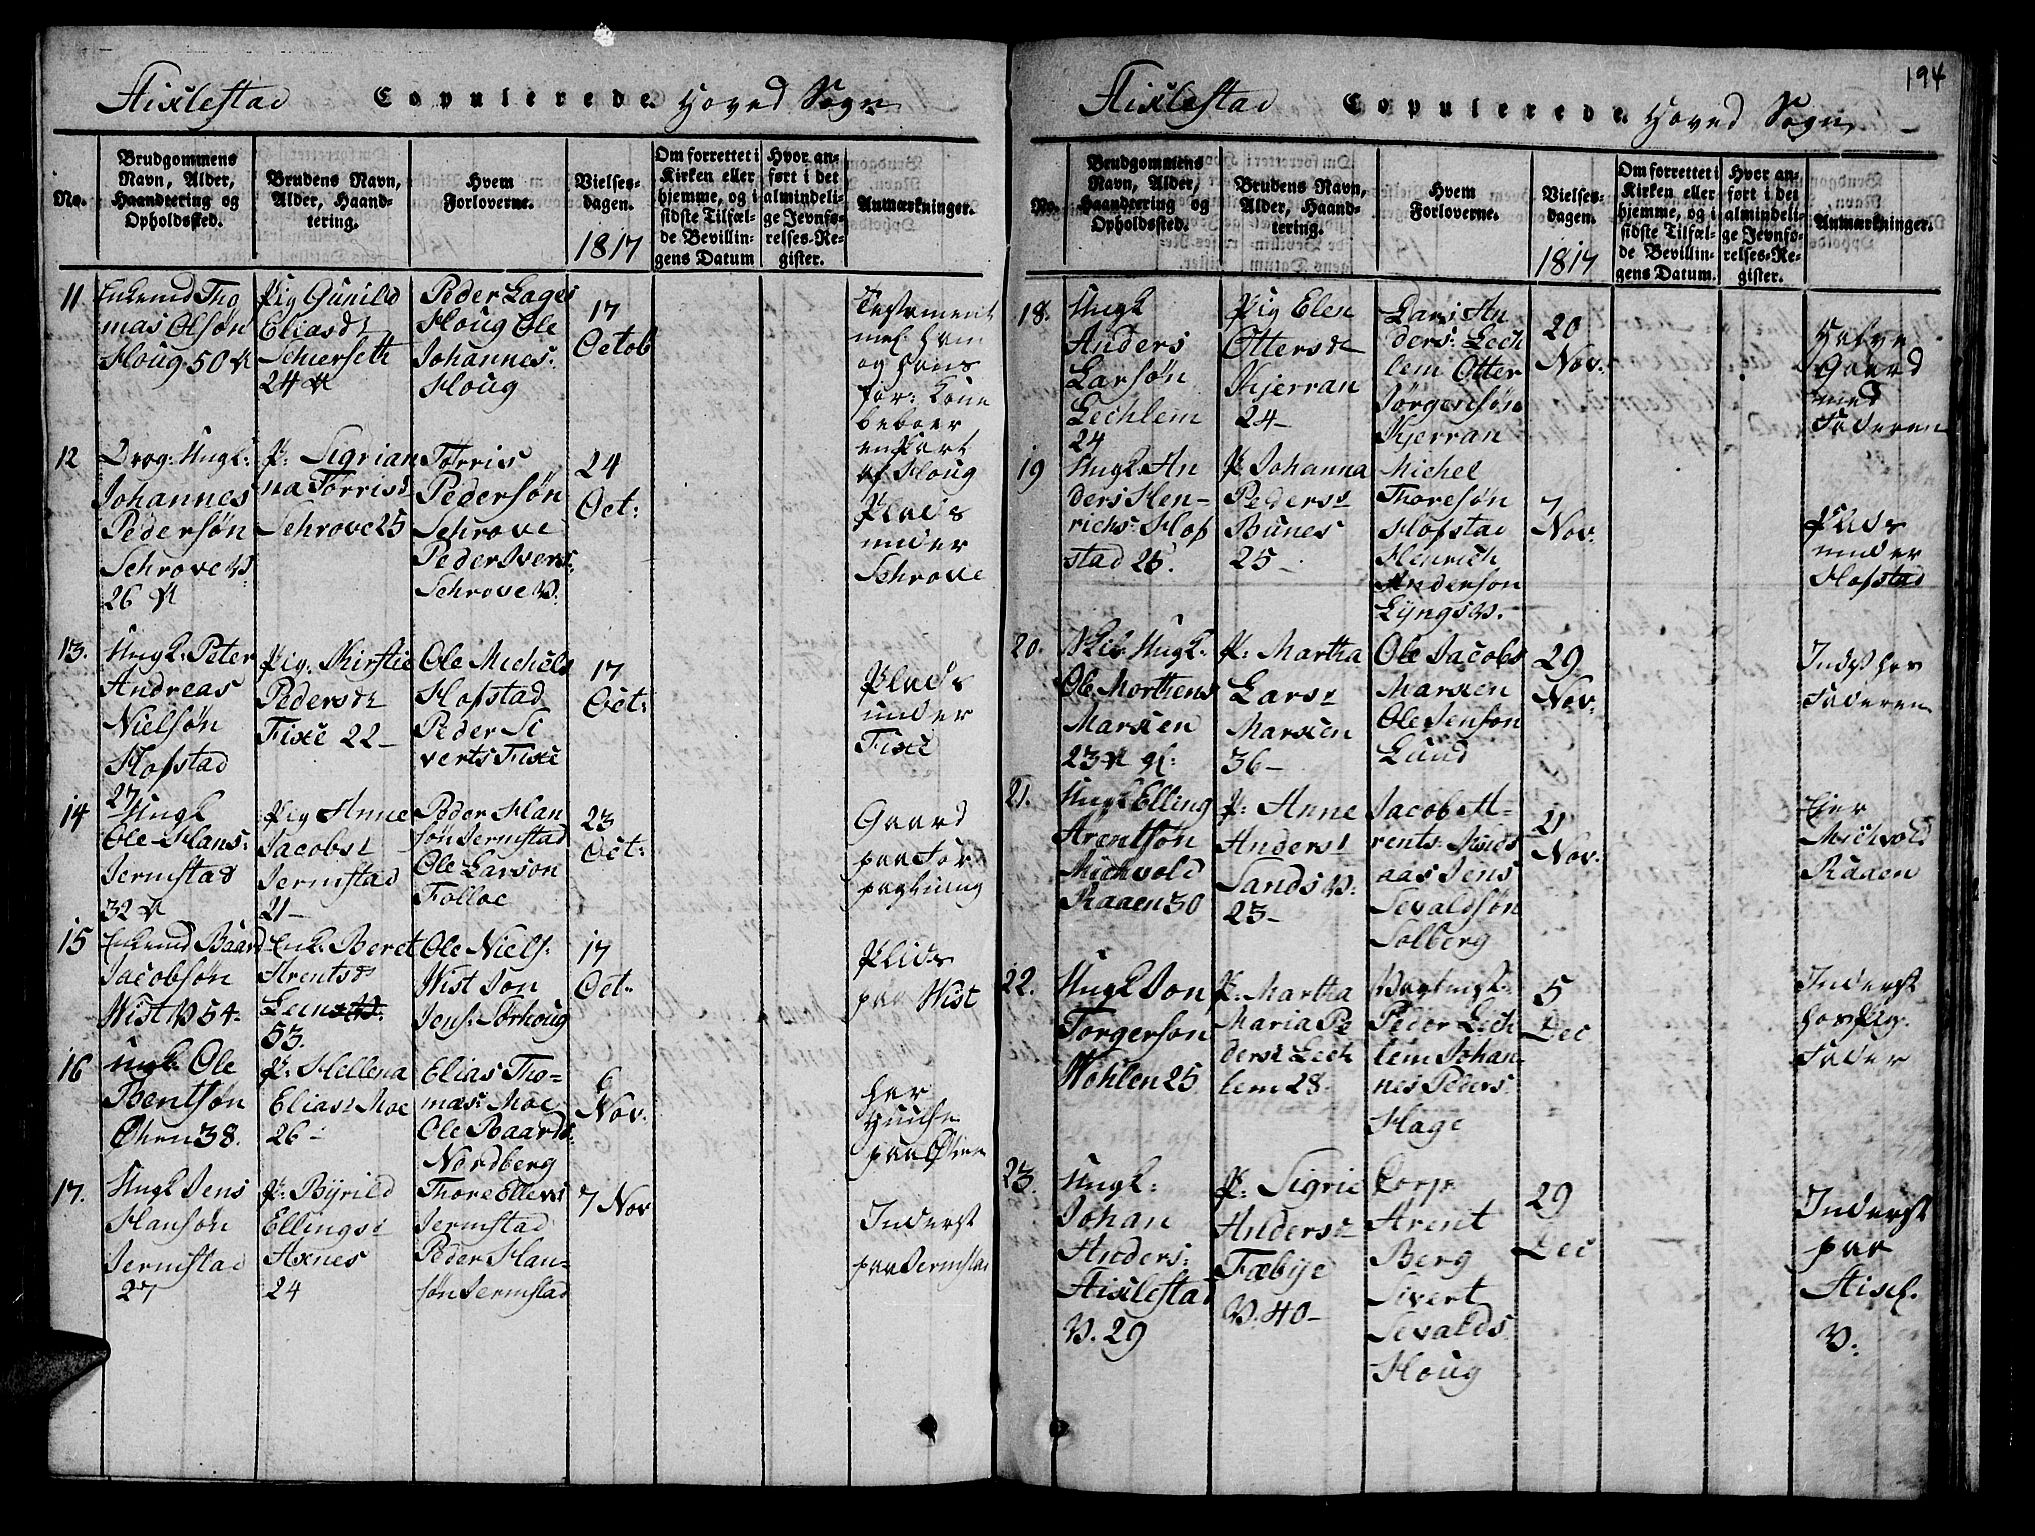 Stixlestad Copulerede Hoved Sogn
No.
Brudgommens
Navn, Alder,
Haandtering og
Opholdssted.
Brudens Navn,
Alder, Haand-
tering.
Hvem
Forloverne.
Vielses-
dagen.
1817
Om forrettet i
Kirken eller
hjemme, og i
sidste Tilfæl-
de Bevillin-
gens Datum
Hvor an-
ført i det
almindeli-
ge Jevnfø-
relses-Re-
gister.
Anmærkninger.
11
Enkemd Tho
mas Olsøn
Houg 50
Pig Gunild
Eliasdr
Schierseth
24
Peder Lages
Houg Ole
Johannes:
Houg
17
Octob
Testament
mel. ham
og hans
for: Kone
beboer
en Part
af Houg
12
Drag: Ungk:
Johannes
Pedersøn
Schrove V.
26
P: Sigrian
na Torrisd
Schrove 25
Torris
Pedersøn
Schrove
Peder Ivers:
Schrove V.
24
Oct:
Plads
under
Schrove
13.
Ungk: Peter
Andreas
Nielsøn
Hofstad
27
Pig. Kirstie
Pedersdr
Fixe 22-
Ole Michels
Hofstad
Peder Si
verts Fixe
17
Oct:
Plads
under
Fixe
14
Ungk
Ole Hans:
Jermstad
32
Pig Anne
Jacobsd
Jermstad
21-
Peder Han
søn Jermstad
Ole Larson
Folloe
23
Oct:
Gaard
paa For
pagtning
15
Enkemd Baard
Jacobsøn
Wist V 54-
Enk. Beret
Arentsd
Lein
53.
Ole Niels:
Wist Jon
Jens: Sørhoug
17
Oct:
Plads
paa Wist
16
Ungk. Ole
Bentsøn
Øhren 38.
P. Hellena
Eliasd Moe
26-
Elias Tho-
mæs: Moe
Ole Baards:
Nordberg
6
Nov.
har
Huuse
paa Øhren
17.
Ungk Jens
Hansøn
Jermstad
27
P: Byrild
Ellingsd
Axnes
24
Thore Ellevs
Jermstad
Peder Han-
søn Jermstad
7 Nov
Inderst
paa Jermstad
194
Stixlestad Copulerede Hoved Sogn
No.
Brudgommens
Navn, Alder,
Haandtering og
Opholdssted.
Brudens Navn,
Alder, Haand-
tering.
Hvem
Forloverne.
Vielses-
dagen.
1817
Om forrettet i
Kirken eller
hjemme, og i
sidste Tilfæl-
de Bevillin-
gens Datum.
Hvor an-
ført i det
almindeli-
ge Jevnfø-
relses-Re-
gister.
Anmærkninger.
18.
Ungk
Anders
Larsøn
Lechlem
24
Pig Elen
Ottersdr
Kjerran
24-
Lars An
ders: Lech
lem Otter
Jørgensøn
Kjerran
20
Nov.
Halve
Gaard
med
Faderen
19
Ungk. An
ders Hen-
richs: Hof
stad 25.
P. Johanna
Pedersd
Bunes
25-
Michel
Thoresøn
Hofstad
Henrich
Anderson
Lyngs V.
7
Nov.
Plads
under
Hofstad
20.
Ungk.
Ole Morthens
Marxen
23
P: Martha
Larsd
Marxen
36-
Ole Jacobs
Marxen
Ole Jensøn
Lund
29
Nov.
Inderst hos
Faderen
21.
Ungk Elling
Arentsøn
Michvold
Raaen 30
P: Anne
Andersd
Sands V.
23-
Jacob A-
rents:
aas Jens
Sevaldsøn
Solberg
21
Nov.
Eier
Michvold
Raaen
22.
Ungk Jon
Torgersøn
Wohlen 25
P: Martha
Maria Pe
dersd Lech
lem 28.
Vagtmst:
Peder Lech
lem Johan
nes Peders
Hage
5
Dec
Inderst
hos Pig.
Fader
23.
Ungk:
Johan
Anders:
Stixlestad
V. 29
P: Sigrie
Andersdr
Fæbye
V. 40-
Corp
Arent
Berg
Sivert
Sevalds
Houg
29
Dec
Inderst
paa
Stixl.
V.